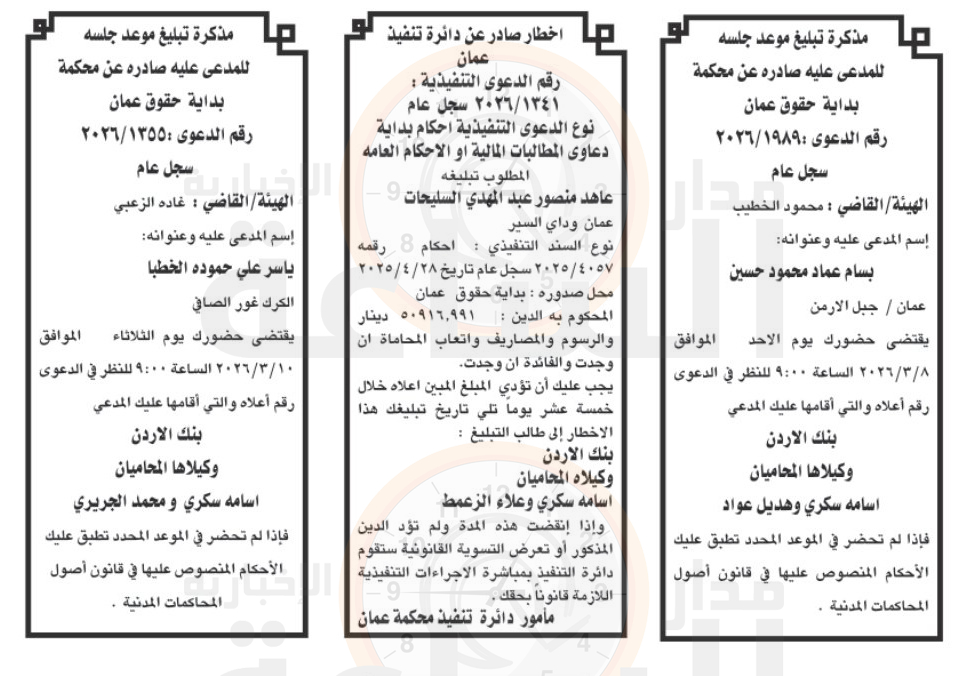 مذكرة تبليغ موعد جلسه
للمدعى عليه صادره عن محكمة
بداية حقوق عمان
رقم الدعوى :٢٠٢٦/١٩٨٩
سجل عام
الهيئة/القاضي : محمود الخطيب
إسم المدعى عليه وعنوانه:
بسام عماد محمود حسين
عمان / جبل الارمن
يقتضى حضورك يوم الاحد الموافق
٢٠٢٦/٣/٨ الساعة ٩:٠٠ للنظر في الدعوى
رقم أعلاه والتي أقامها عليك المدعي
بنك الاردن
وكيلاها المحاميان
اسامه سكري وهديل عواد
فإذا لم تحضر في الموعد المحدد تطبق عليك
الأحكام المنصوص عليها في قانون أصول
المحاكمات المدنية .
اخطار صادر عن دائرة تنفيذ
عمان
رقم الدعوى التنفيذية :
٢٠٢٦/١٣٤١ سجل عام
نوع الدعوى التنفيذية احكام بداية
دعاوى المطالبات المالية او الاحكام العامه
المطلوب تبليغه
عاهد منصور عبد المهدي السليحات
عمان وداي السير
نوع السند التنفيذي : احكام رقمه
٢٠٢٥/٤٠٥٧ سجل عام تاريخ ٢٠٢٥/٤/٢٨
محل صدوره : بداية حقوق عمان
المحكوم به الدين : ٥٠٩١٦,٩٩١ دينار
والرسوم والمصاريف واتعاب المحاماة ان
وجدت والفائدة ان وجدت.
يجب عليك أن تؤدي المبلغ المبين اعلاه خلال
خمسة عشر يوماً تلي تاريخ تبليغك هذا
الاخطار إلى طالب التبليغ :
بنك الاردن
وكيلاه المحاميان
اسامه سكري وعلاء الزعمط
وإذا إنقضت هذه المدة ولم تؤد الدين
المذكور أو تعرض التسوية القانونية ستقوم
دائرة التنفيذ بمباشرة الاجراءات التنفيذية
اللازمة قانوناً بحقك .
مأمور دائرة تنفيذ محكمة عمان
مذكرة تبليغ موعد جلسه
للمدعى عليه صادره عن محكمة
بداية حقوق عمان
رقم الدعوى :٢٠٢٦/١٣٥٥
سجل عام
الهيئة/القاضي : غاده الزعبي
إسم المدعى عليه وعنوانه:
ياسر علي حموده الخطبا
الكرك غور الصافي
يقتضى حضورك يوم الثلاثاء الموافق
٢٠٢٦/٣/١٠ الساعة ٩:٠٠ للنظر في الدعوى
رقم أعلاه والتي أقامها عليك المدعي
بنك الاردن
وكيلاها المحاميان
اسامه سكري و محمد الجريري
فإذا لم تحضر في الموعد المحدد تطبق عليك
الأحكام المنصوص عليها في قانون أصول
المحاكمات المدنية .
مدار
الساعة
الإخبارية